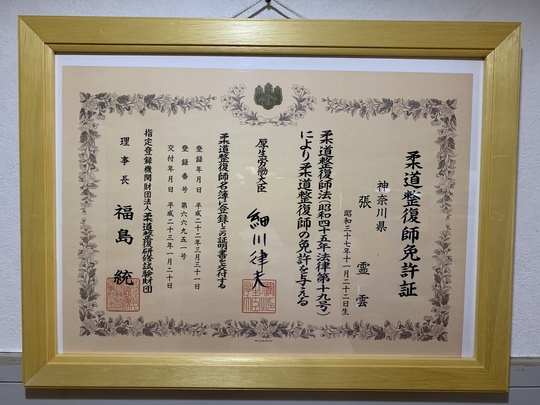 柔道整復師免許証
神奈川県
張 靈雲
昭和三十七年十一月二十二日生
柔道整復師法(昭和四十五年法律第十九号)
により柔道整復師の免許を与える
厚生労働大臣 細川律夫
柔道整復師名簿に登録しこの証明書を交付する
登録年月日 平成二十二年三月三十一日
登録番号 第六六九五一号
交付年月日 平成二十三年一月二十日
指定登録機関財団法人柔道整復研修試験財団
理事長 福島 統